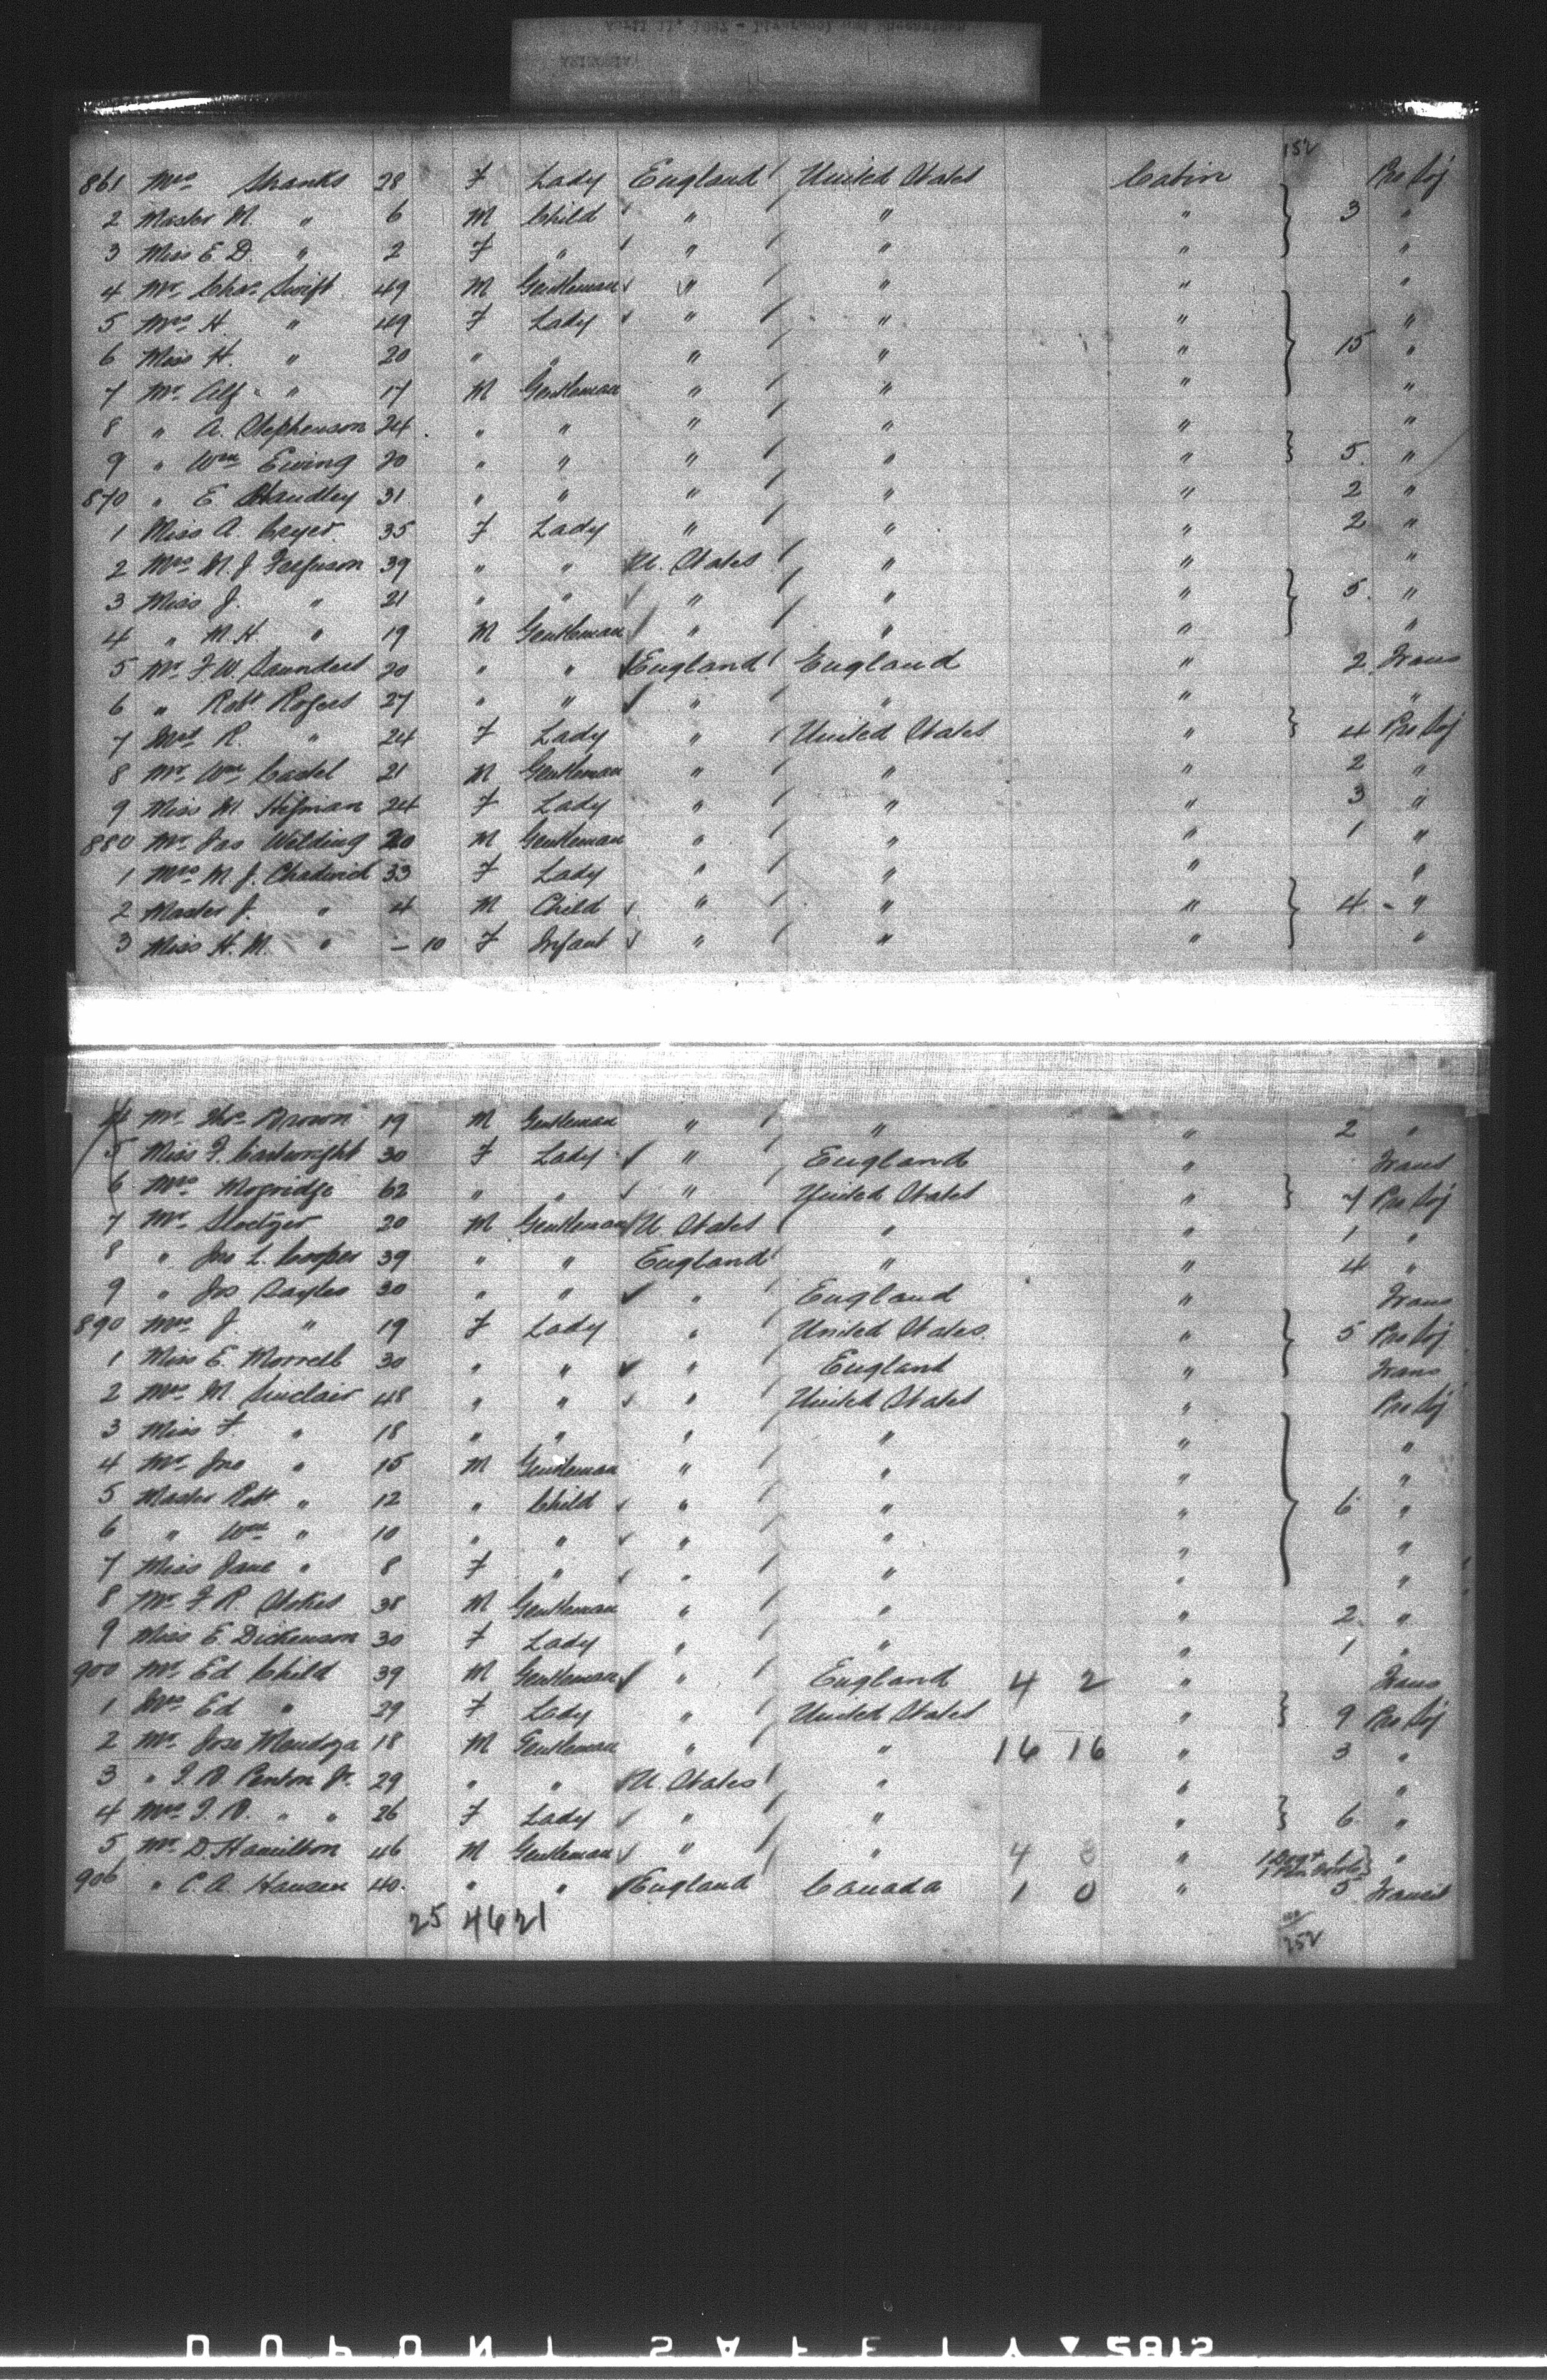 152
861 Mrs Shanks 28 F Lady England United States Cabin Pro Soj
2 Master M. " 6 M Child " " " 3 "
3 Miss E D. " 2 F " " " " "
4 Mr Chas Swift 49 M Gentleman " " " "
5 Mrs H. " 49 F Lady " " " "
6 Miss H. " 20 " " " " " 15 "
7 Mr Alf " 17 M Gentleman " " " "
8 " A. Stephenson 24 " " " " " "
9 " Wm Ewing 20 " " " " " 5 "
870 " E. Handley 31 " " " " " 2 "
1 Miss A. Cryer 35 F Lady " " " 2 "
2 Mrs M. J Ferguson 39 " " U. States " " "
3 Miss J. " 21 " " " " " 5 "
4 " M H. " 19 M Gentleman " " " "
5 Mr F W. Saunders 20 " " England England " 2 Trans
6 " Robt Rogers 27 " " " " " "
7 Mrs R. " 24 F Lady " United States " 4 Pro Soj
8 Mr Wm Castel 21 M Gentleman " " " 2 "
9 Miss M. 24 F Lady " " " 3 "
880 Mr Jas Wilding 20 M Gentleman " " " 1 "
1 Mrs M. J. Chadwick 33 F Lady " " " "
2 Master J. " 4 M Child " " " 4 - "
3 Miss H. M. " – 10 F Infant " " " "
4 Mr Thos Brown 19 M Gentleman " " " 2 "
5 Miss F. Cartwright 30 F Lady " England " Trans
6 Mrs Mogridge 62 " " " United States " 7 Pro Soj
7 Mr 20 M Gentleman U. States " " 1 "
8 " Jno L. Cooper 39 " " England " " 4 "
9 " Jos Sayles 30 " " " England " Trans
890 Mrs J. " 19 F Lady " United States. " 5 Pro Soj
1 Miss E. Morrell 30 " " " England " Trans
2 Mrs M. Sinclair 48 " " " United States " Pro Soj
3 Miss F " 18 " " " " " "
4 Mr Jno " 15 M Gentleman " " " "
5 Master Robt " 12 " Child " " " 6 "
6 " Wm " 10 " " " " " "
7 Miss Jane " 8 F " " " " "
8 Mr F. R. Stokes 38 M Gentleman " " " 2 "
9 Miss E. Dickenson 30 F Lady " " " 1 "
900 Mr Ed Child 39 M Gentleman " England 4 2 " Trans
1 Mrs Ed " 29 F Lady " United States " 9 Pro Soj
2 Mr Jose Mendoza 18 M Gentleman " " 16 16 " 3 "
3 " Penton Jr. 29 " " U. States " " "
4 Mrs " " 26 F Lady " " " 6 "
5 Mr D. Hamilton 46 M Gentleman " " 4 " "
906 " C. A. Hansen 40 " " England Canada 1 0 " 5 Transit
25 46 21
252
DUPONT SAFETY